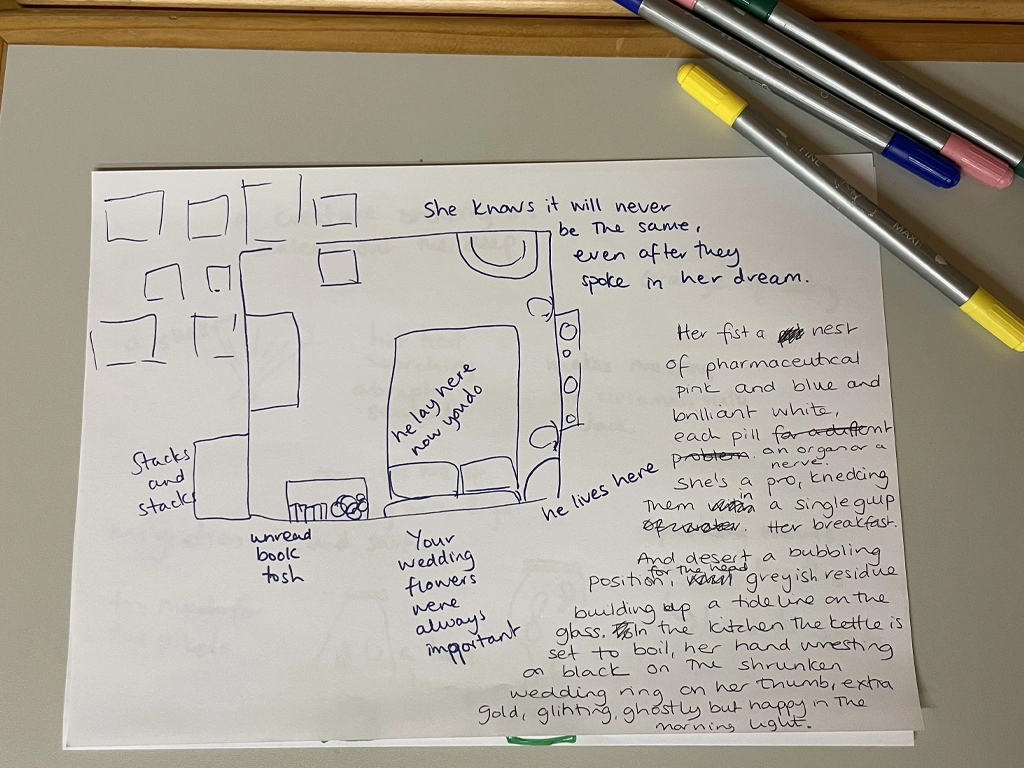 She knows it will never
be the same,
even after they
spoke in her dream.
he lay here
now you do
Stacks
and
stacks
unread
book
tosh
Your
wedding
flowers
were
always
important
he lives here
Her fist a nest
of pharmaceutical
pink and blue and
brilliant white,
each pill for a different
problem. an organ or a
nerve.
She's a pro, knedcing
them in a single gulp
of water. Her breakfast.
And desert a bubbling
for the head
position, greyish residue
building up a tide line on the
glass. In the kitchen the kettle is
set to boil, her hand wresting
on black on the shrunken
wedding ring on her thumb, extra
gold, glihting, ghostly but happy in the
morning light.
FINE
MAXI